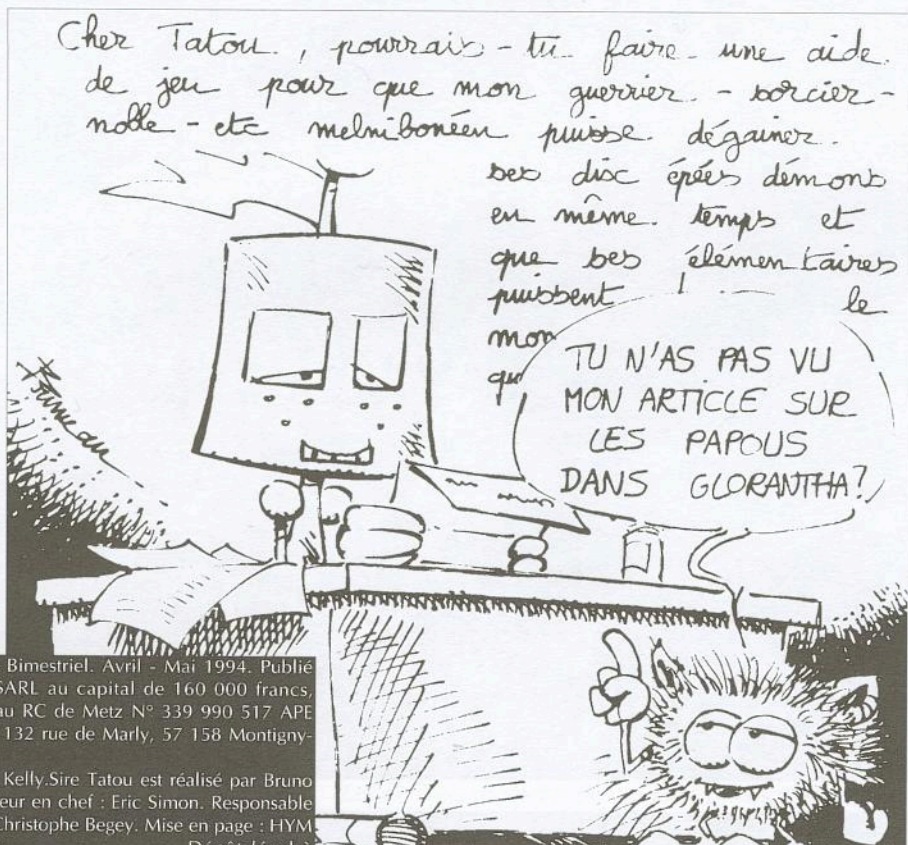 Cher Tatou, pourrais-tu faire une aide
de jeu pour que mon guerrier - sorcier -
noble - etc melnibonéen puisse dégainer
ses dix épées démons
en même temps et
que ses élémentaires
puissent le
mon
qu
TU N'AS PAS VU
MON ARTICLE SUR
LES PAPOUS
DANS GLORANTHA?
Bimestriel. Avril - Mai 1994. Publié
SARL au capital de 160 000 francs,
au RC de Metz N° 339 990 517 APE
132 rue de Marly, 57 158 Montigny-
Kelly.Sire Tatou est réalisé par Bruno
eur en chef : Eric Simon. Responsable
Christophe Begey. Mise en page : HYM